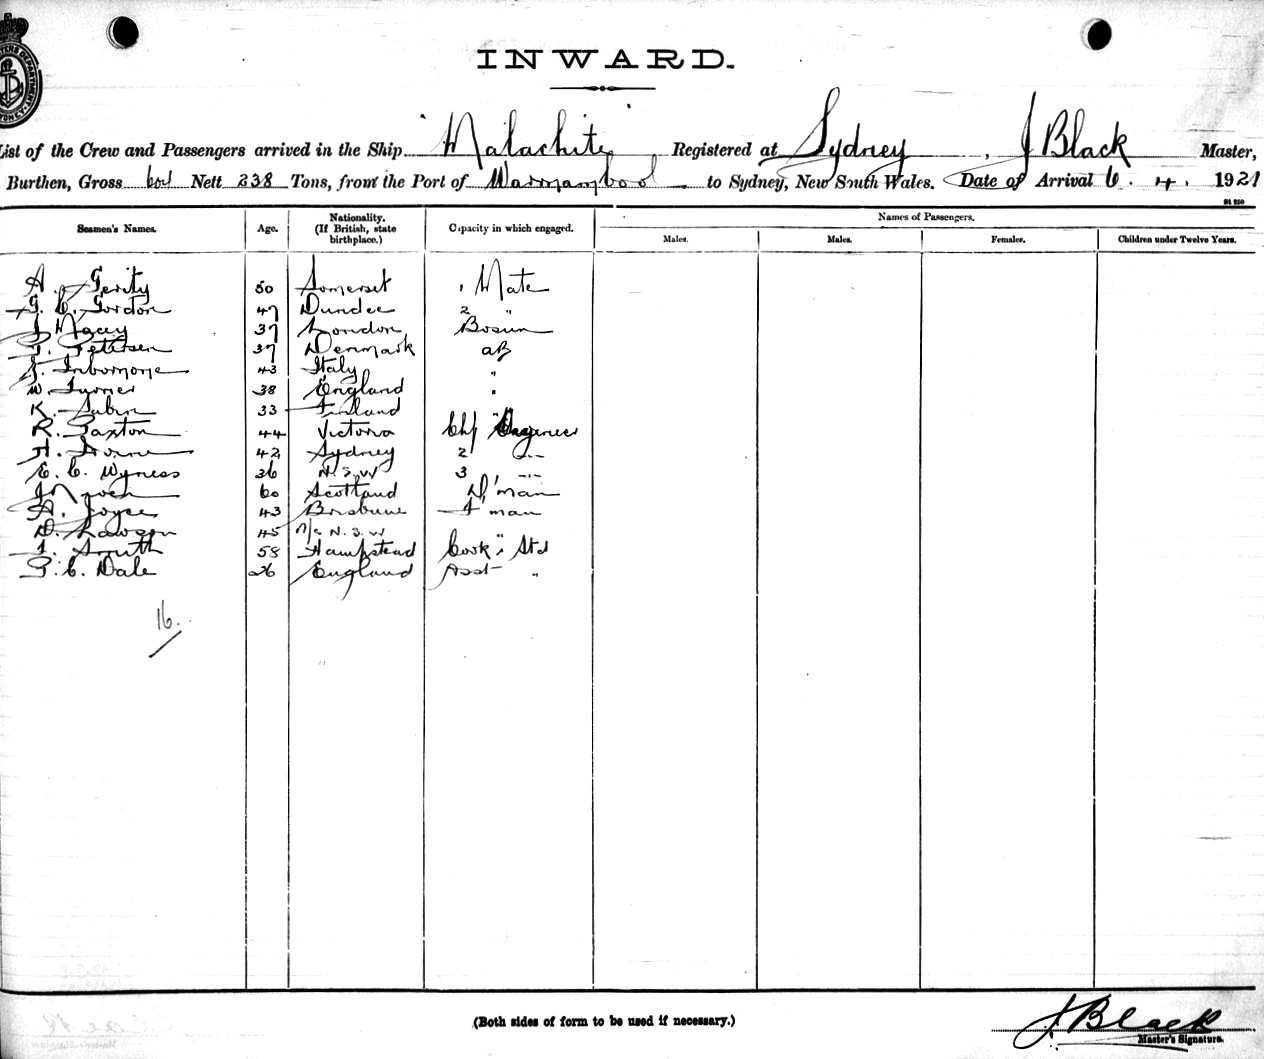 INWARD.
List of the Crew and Passengers arrived in the Ship "Malachite" Registered at Sydney, J Black Master,
Burthen, Gross Nett 238 Tons, from the Port of Warrnambool to Sydney, New South Wales. Date of Arrival 6. 4. 1921
Seamen's Names. Age. Nationality. (If British, state birthplace.) Capacity in which engaged. Names of Passengers.
Males. Males. Females. Children under Twelve Years.
A. Gerity 50 Somerset 1 Mate
G. C. Gordon 47 Dundee 2 "
J Macey 37 London Bosun
Petersen 37 Denmark AB
43 Italy "
W. Turner 38 England "
K. Sabin 33 Finland "
R. Paxton 44 Victoria Chf Engineer
H. Horne 42 Sydney 2 -..-
E. C. Wyness 26 N.S.W 3 -..-
J 60 Scotland D'man
A. Joyce 43 Brisbane F'man
D. Lawson 45 N/c N.S.W "
Smith 58 Hampstead Cook & Std
G. C. Dale 26 England Asst "
16.
(Both sides of form to be used if necessary.)
J Black
Master's Signature.